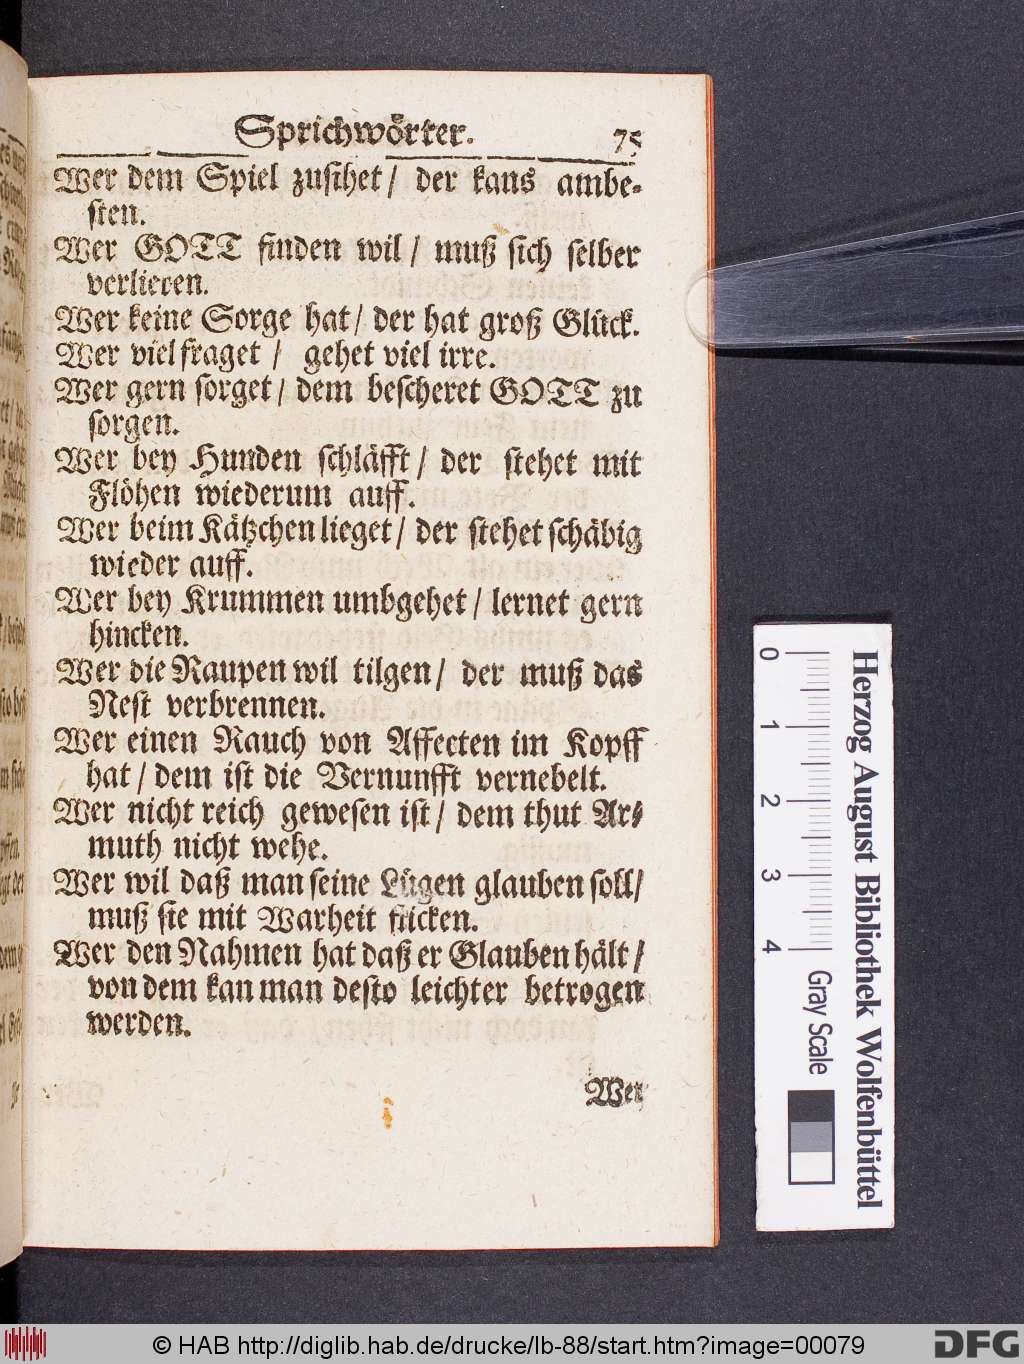 Sprichwörter. 75
Wer dem Spiel zusihet/ der kans ambe-
sten.
Wer GOTT finden wil/ muß sich selber
verlieren.
Wer keine Sorge hat/ der hat groß Glück.
Wer viel fraget/ gehet viel irre.
Wer gern sorget/ dem bescheret GOTT zu
sorgen.
Wer bey Hunden schläfft/ der stehet mit
Flöhen wiederum auff.
Wer beim Kätzchen lieget/ der stehet schäbig
wieder auff.
Wer bey Krummen umbgehet/ lernet gern
hincken.
Wer die Raupen wil tilgen/ der muß das
Nest verbrennen.
Wer einen Rauch von Affecten im Kopff
hat/ dem ist die Vernunfft vernebelt.
Wer nicht reich gewesen ist/ dem thut Ar-
muth nicht wehe.
Wer wil daß man seine Lügen glauben soll/
muß sie mit Warheit flicken.
Wer den Nahmen hat daß er Glauben hält/
von dem kan man desto leichter betrogen
werden.
Wer
0 1 2 3 4
Gray Scale
Herzog August Bibliothek Wolfenbüttel
© HAB http://diglib.hab.de/drucke/lb-88/start.htm?image=00079
DFG